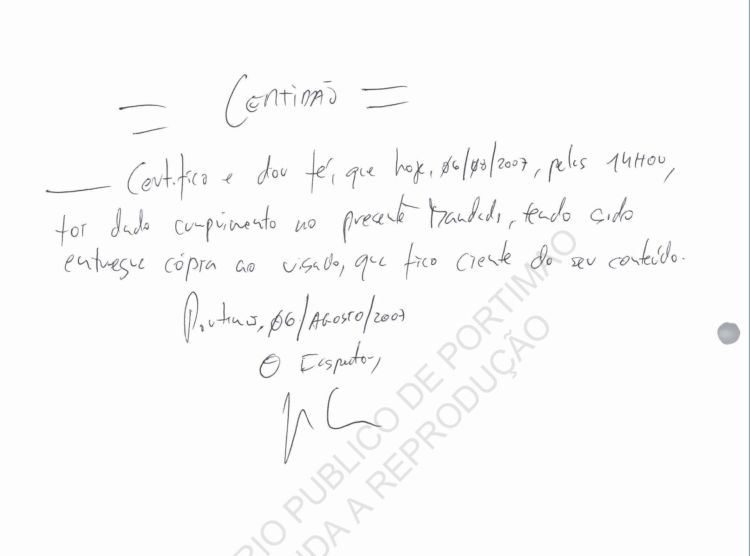 = Certidão =
Certifico e dou fé, que hoje, 06/08/2007, pelas 14H00,
foi dado cumprimento no presente Mandado, tendo sido
entregue cópia ao visado, que fico ciente do seu conteúdo.
Portimão, 06/AGOSTO/2007
O Inspector,
RIO PUBLICO DE PORTIMAO
DA A REPRODUÇÃO